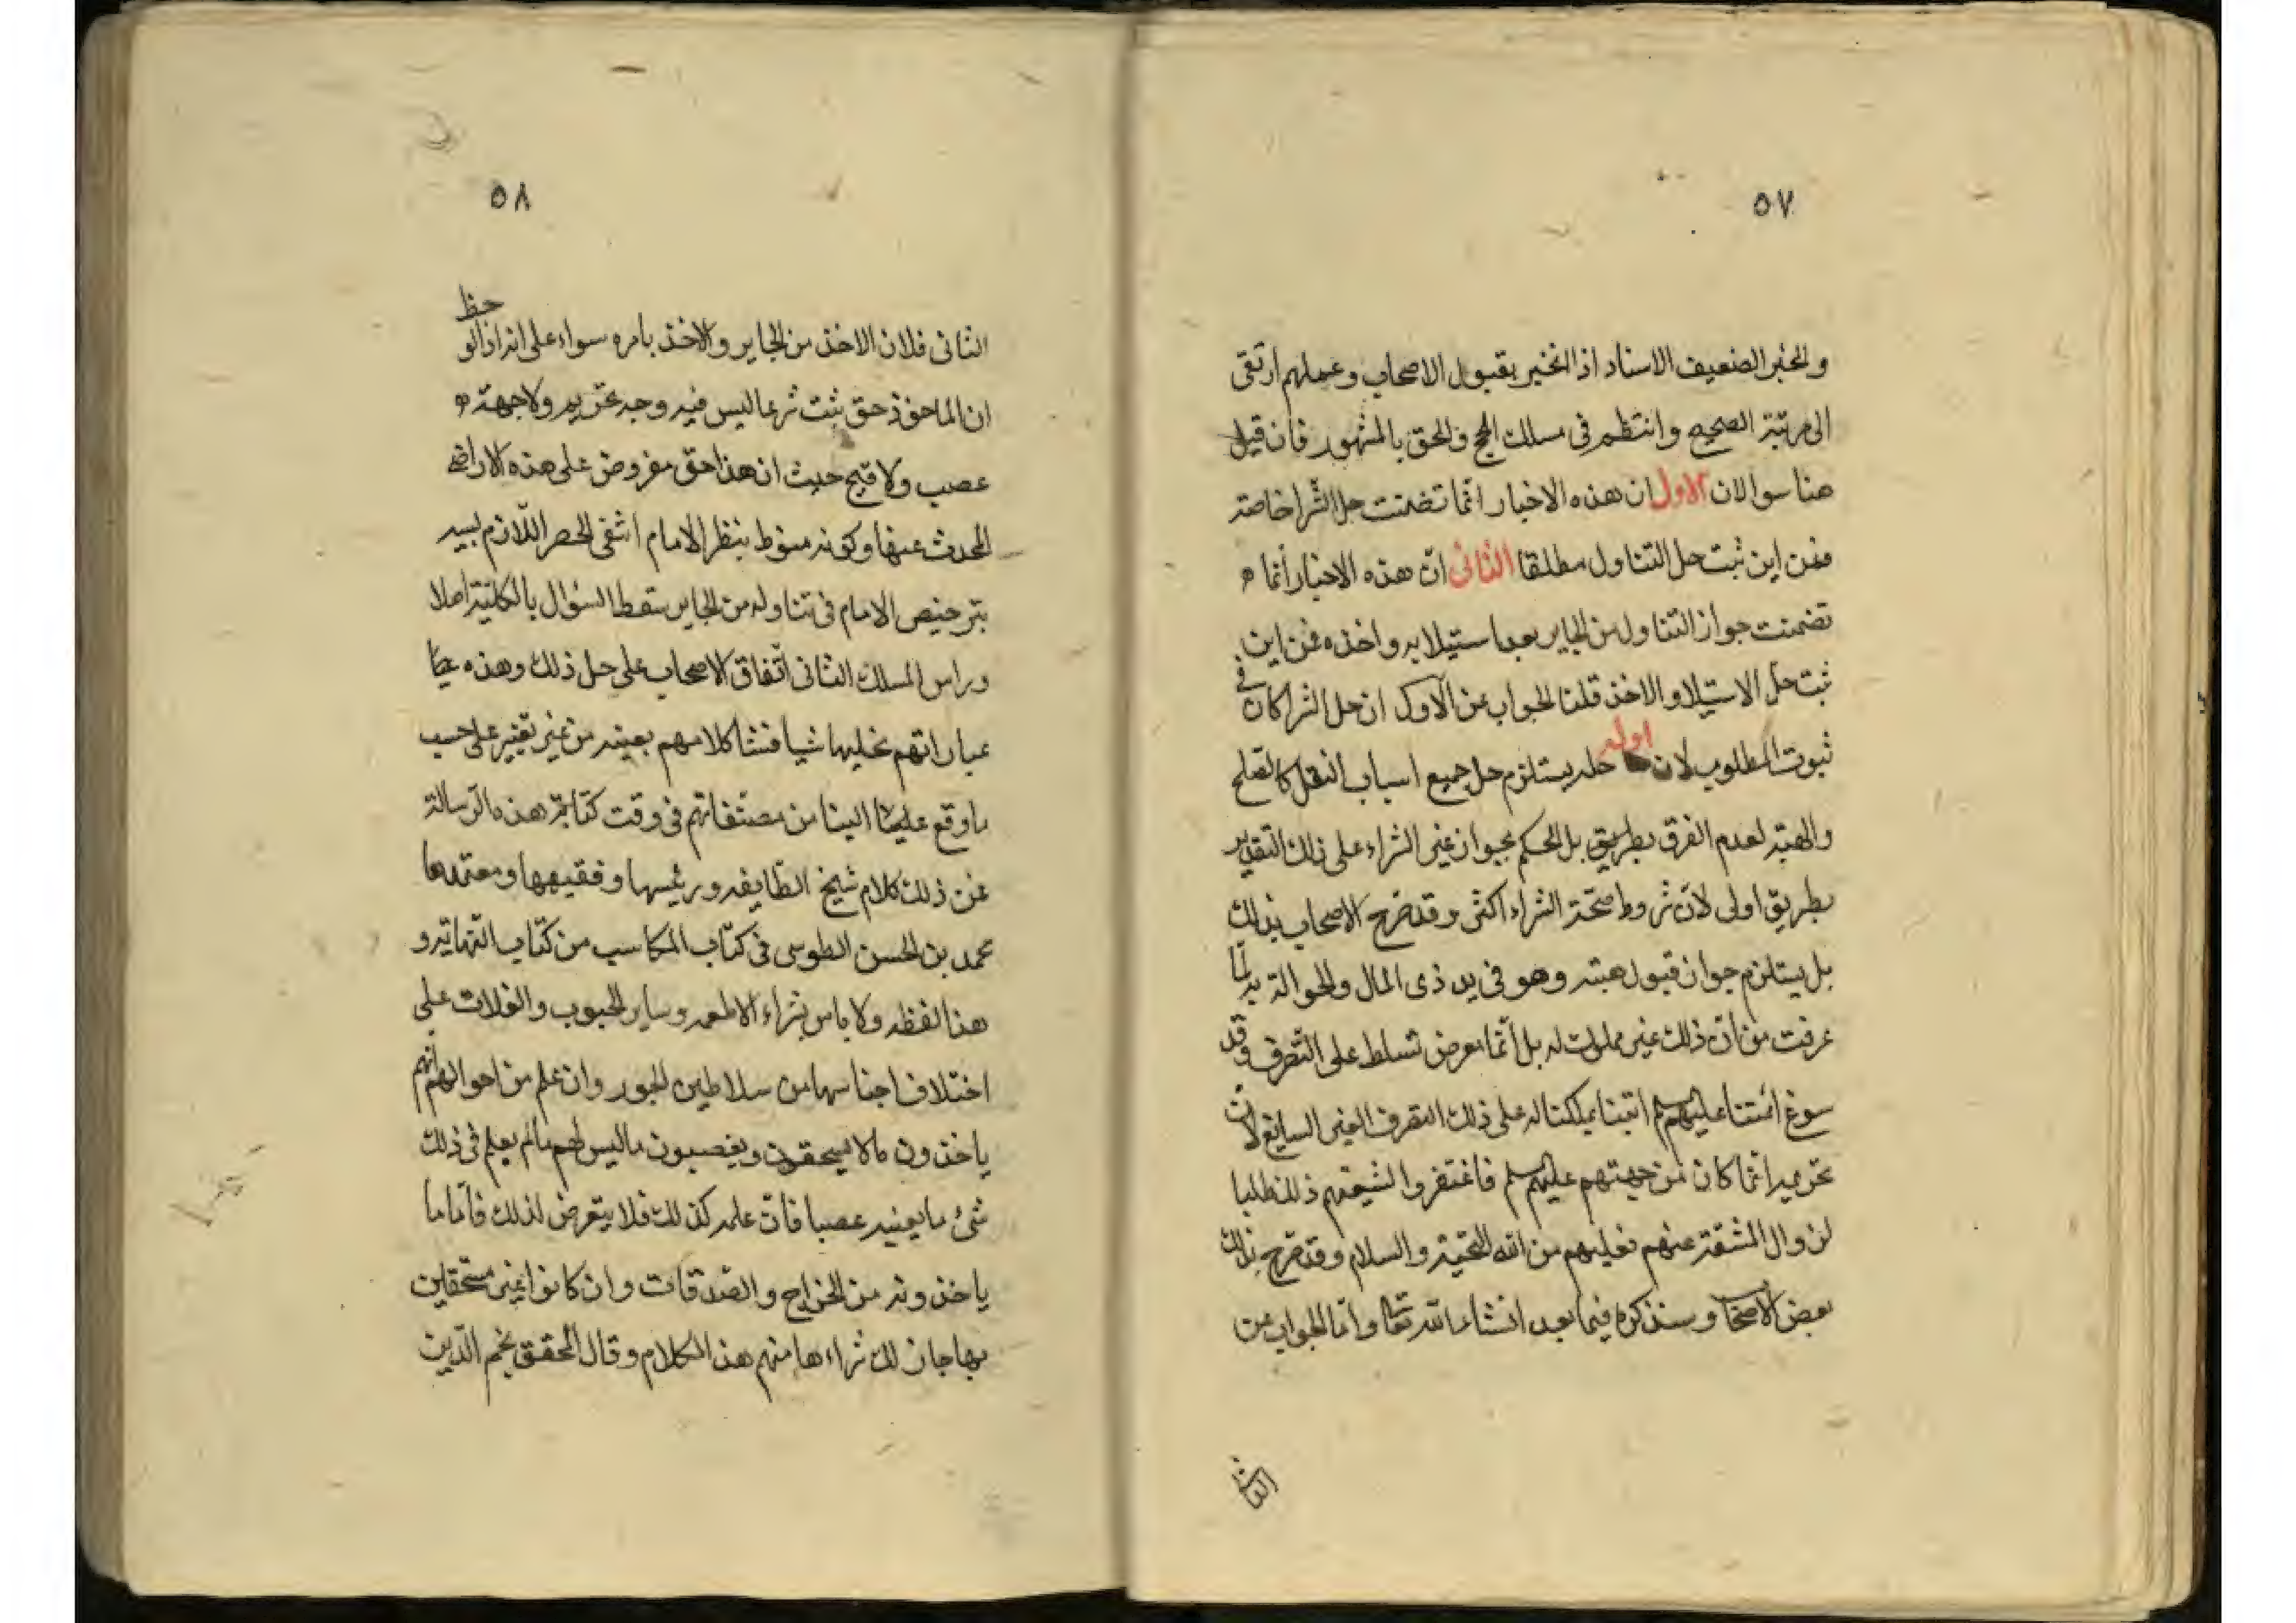 ٥٧
والخبر الضعيف الاسناد اذا انجبر بقبول الاصحاب وعملهم ارتقى
الى مرتبة الصحيح وانتظم فى مسلك الحج والحق بالمشهور فان قيل
هنا سوالان الاول ان هذه الاخبار انما تضمنت حل الشرا خاصة
فمن اين ثبت حل التناول مطلقا الثانى ان هذه الاخبار انما
تضمنت جواز التناول من الجاير بعد استيلايه واخذه فمن اين
ثبت حل الاستيلا والاخذ قلنا الجواب عن الاول ان حل الشرا كاف فى
ثبوت المطلوب لان حله يستلزم حل جميع اسباب النقل كالصلح
اولى
والهبة لعدم الفرق بطريق بل الحكم بجواز غير الشراء على ذلك التقدير
بطريق اولى لان شروط صحة الشراء اكثر وقد صرح الاصحاب بذلك
بل يستلزم جواز قبول هبته وهو فى يد ذى المال والحوالة به لما
عرفت من ان ذلك غير مملوك له بل انما يعرض تسلط على التصرف وقد
سوغ ائمتنا عليهم سلم ابتنا تملكنا له على ذلك التصرف الغير السايغ لان
تحريمه انما كان من جهتهم عليهم سلم فاغتفروا لشيعتهم ذلك طلبا
لزوال المشقة عنهم فعليهم من الله التحية والسلام وقد صرح بذلك
بعض الاصحاب وسنذكره فيما بعد انشاء الله تعا واما الجواب عن
الثانى
٥٨
حظ
الثانى فلان الاخذ من الجاير والاخذ بامره سواء على انه اذا لو
ان الماخوذ حق ثبت شرعا ليس فيه وجه تحريم ولا جهة
غصب ولا قبح حيث ان هذا حق مفروض على هذه الاراضى
المحدث عنها وكونه منوط بنظر الامام انتفى الحصر اللازم لسبب
بترخيص الامام فى تناوله من الجاير سقط السؤال بالكلية اصلا
وراس المسلك الثانى اتفاق الاصحاب على حل ذلك وهذه
عباراتهم نحليها شيا فشا كلامهم بعينه من غير تغيير على حسب
ما وقع الينا من مصنفاتهم فى وقت كتابة هذه الرسالة
فمن ذلك كلام شيخ الطايفه ورئيسها وفقيهها ومعتمدها
محمد بن الحسن الطوسى فى كتاب المكاسب من كتاب النهاية و
هذا لفظه ولا باس بشراء الاطعمه وساير الحبوب والغلات على
اختلاف اجناسها من سلاطين الجور وان علم من احوالهم انهم
ياخذون ما لا يستحقون ويغصبون ما ليس لهم ما لم يعلم فى ذلك
شئ ما يعينه غصبا فان علمه كذلك فلا يتعرض لذلك فاما ما
ياخذونه من الخراج والصدقات وان كانوا غير مستحقين
بها جاز لك شراءها منهم هذا الكلام وقال المحقق نجم الدين